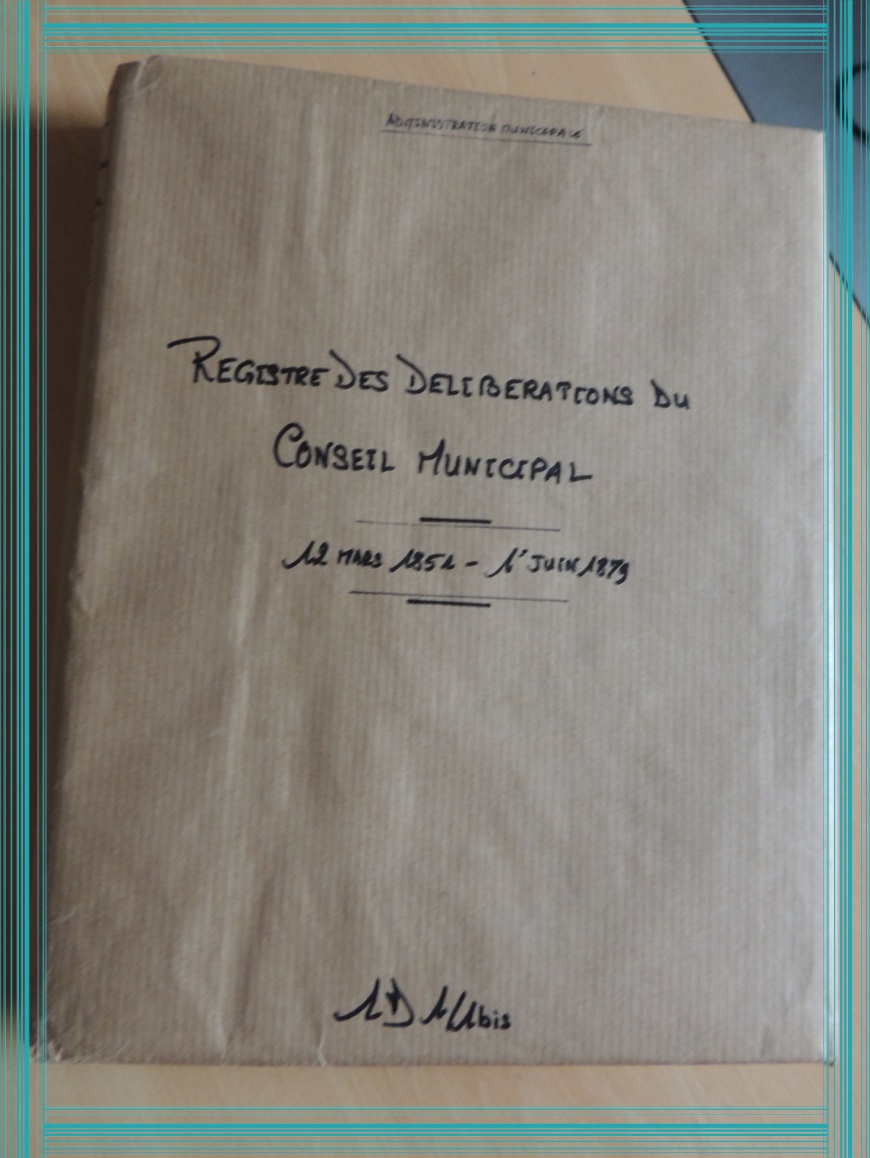 ADMINISTRATION MUNICIPALE
REGISTRE DES DELIBERATIONS DU
CONSEIL MUNICIPAL
12 MARS 1851 - 1' JUIN 1879
1D